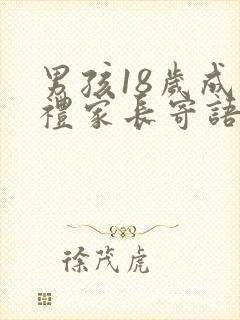 男孩18歲成
禮家長寄語
徐茂虎